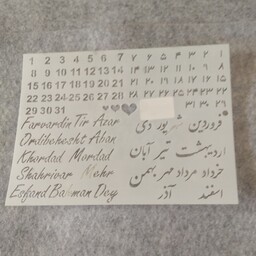 1 2 3 4 5 6 7 ۷ ۶ ۵ ۴ ۳ ۲ ۱
8 9 10 11 12 13 14 ۱۴ ۱۳ ۱۲ ۱۱ ۱۰ ۹ ۸
15 16 17 18 19 20 21 ۲۱ ۲۰ ۱۹ ۱۸ ۱۷ ۱۶ ۱۵
22 23 24 25 26 27 28 ۲۸ ۲۷ ۲۶ ۲۵ ۲۴ ۲۳ ۲۲
29 30 31 ۳۱ ۳۰ ۲۹
Farvardin Tir Azar فروردین شهریور دی
Ordibehesht Aban اردیبهشت تیر آبان
Khordad Mordad خرداد مرداد مهر بهمن
Shahrivar Mehr اسفند آذر
Esfand Bahman Dey